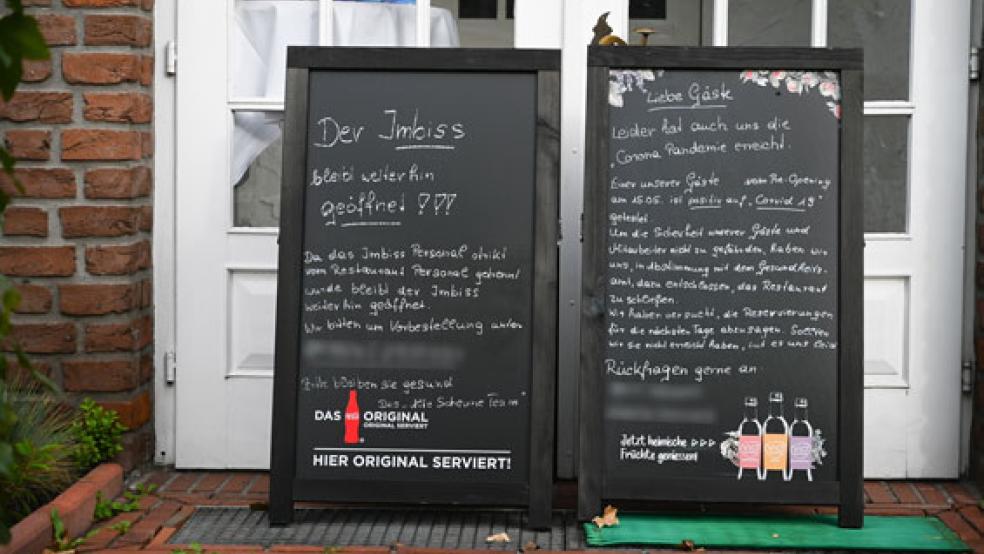 Der Imbiss
bleibt weiterhin
geöffnet !!!
Da das Imbiss Personal strikt
vom Restaurant Personal getrennt
wurde bleibt der Imbiss
weiterhin geöffnet.
Wir bitten um Vorbestellung unter
Bitte bleiben sie gesund
Das "Alte Scheune Team"
DAS ORIGINAL
ORIGINAL SERVIERT
HIER ORIGINAL SERVIERT!
Liebe Gäste
Leider hat auch uns die
"Corona Pandemie erreicht.
Einer unserer Gäste vom Re-Opening
am 15.05. ist positiv auf "Covid 19"
getestet
Um die Sicherheit unserer Gäste und
Mitarbeiter nicht zu gefährden, haben wir
uns, in Abstimmung mit dem Gesundheits-
amt, dazu entschlossen, das Restaurant
zu schließen.
Wir haben versucht, die Reservierungen
für die nächsten Tage abzusagen. Sollten
wir sie nicht erreicht haben, tut es uns leid
Rückfragen gerne an
Jetzt heimische
Früchte genießen!